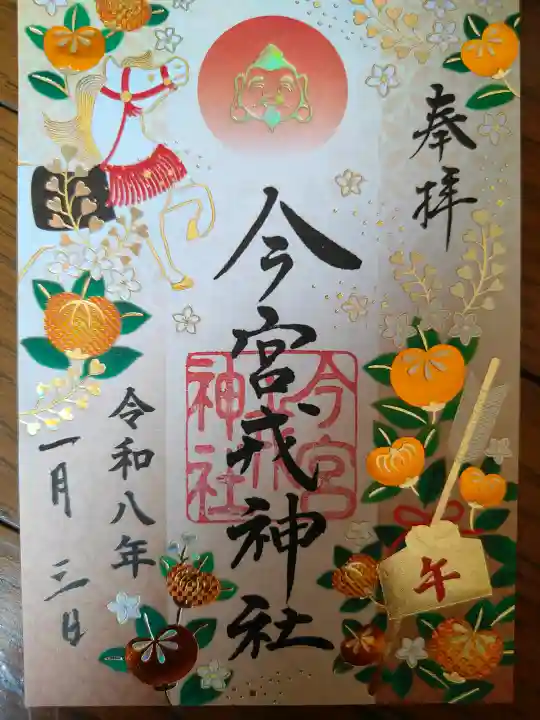 奉拝
今宮戎神社
今宮
戎
神社
令和八年
一月三日
午